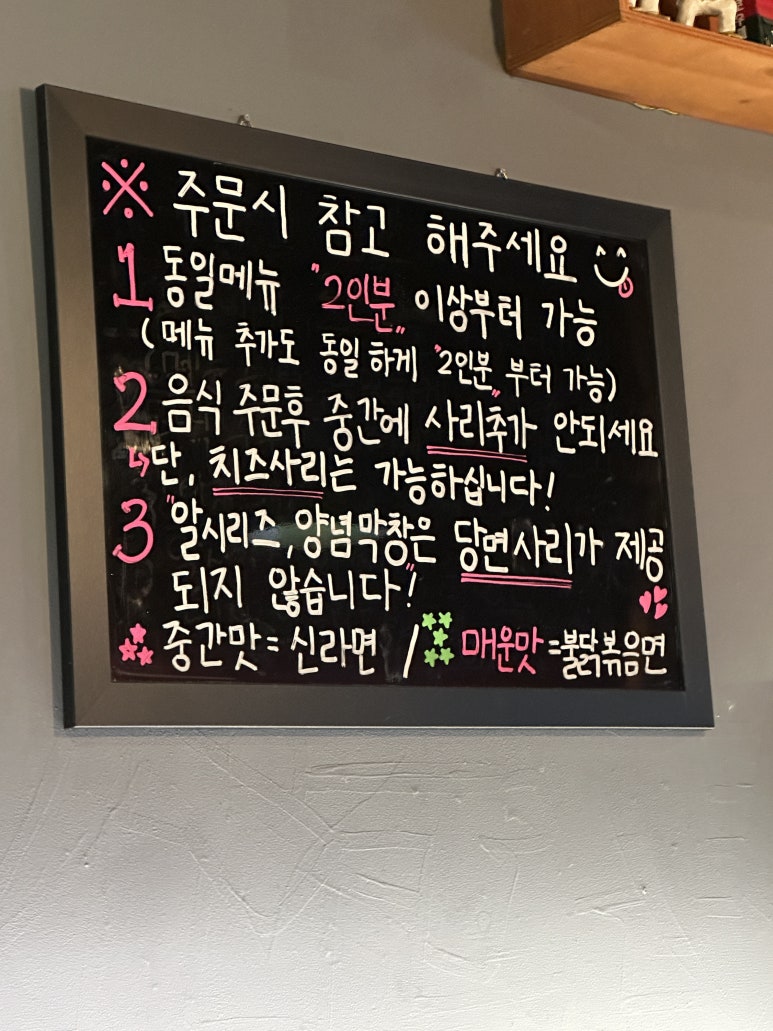 ※ 주문시 참고 해주세요
1 동일메뉴 "2인분" 이상부터 가능
(메뉴 추가도 동일하게 "2인분" 부터 가능)
2 음식 주문후 중간에 사리추가 안되세요
↳단, 치즈사리는 가능하십니다!
3 "알시리즈, 양념막창은 당면사리가 제공
되지 않습니다"!
중간맛 = 신라면 / 매운맛 = 불닭볶음면